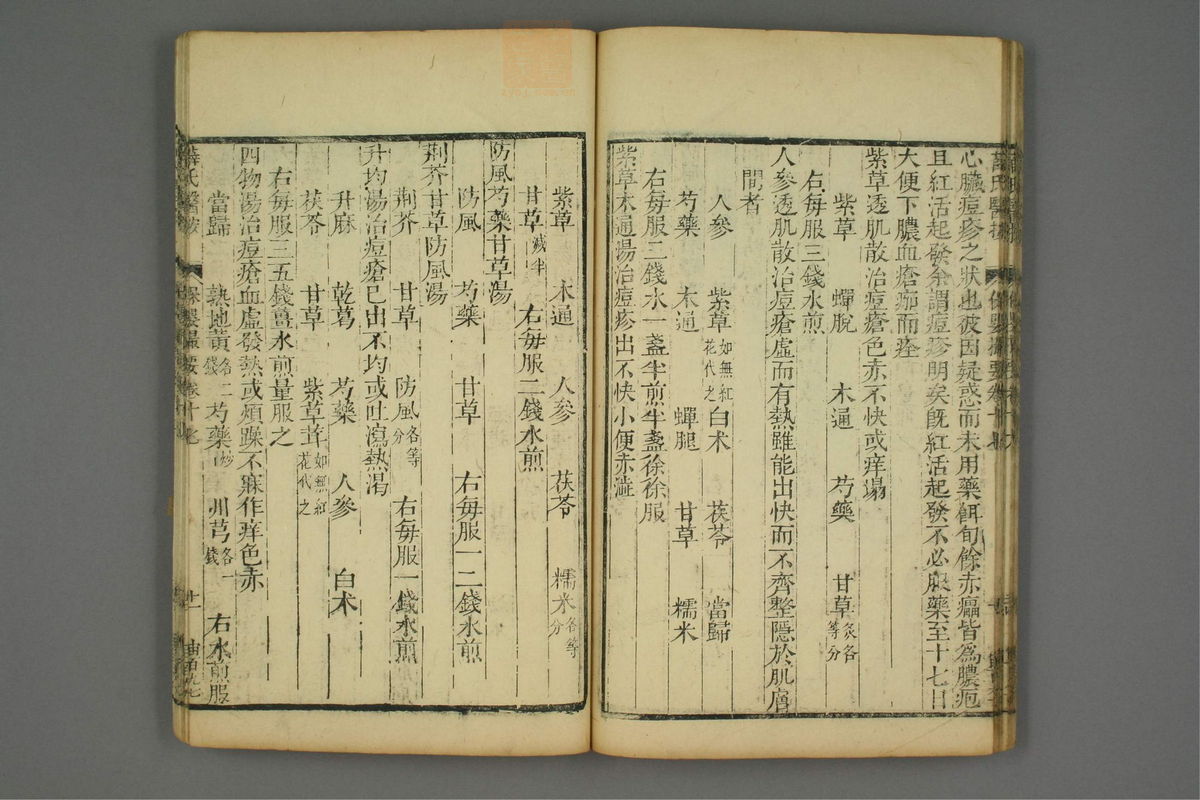 心臟痘疹之狀也彼因疑惑而未用藥餌旬餘赤癟皆爲膿疱
且紅活起發余謂痘疹明矣旣紅活起發不必服藥至十七日
大便下膿血瘡痂而痊
紫草透肌散治痘瘡色赤不快或痒塌
紫草 蟬脫 木通 芍藥 甘草炙各等分
右每服三錢水煎
人參透肌散治痘瘡虛而有熱雖能出快而不齊整隱於肌膚
間者
人參 紫草如無紅花代之 白术 茯苓 當歸
芍藥 木通 蟬腿 甘草 糯米
右每服二錢水一盞半煎半盞徐徐服
紫草木通湯治痘疹出不快小便赤澁
紫草 木通 人參 茯苓 糯米各等分
甘草減半 右每服二錢水煎
防風芍藥甘草湯
防風 芍藥 甘草 右每服一二錢水煎
荆芥甘草防風湯
荆芥 甘草 防風各等分 右每服一錢水煎
升均湯治痘瘡已出不均或吐瀉熱渴
升麻 乾葛 芍藥 人參 白术
茯苓 甘草 紫草茸如無紅花代之
右每服三五錢薑水煎量服之
四物湯治痘瘡血虛發熱或煩躁不寐作痒色赤
當歸 熟地黃各二錢 芍藥炒 川芎各一錢 右水煎服
薛氏醫按 保嬰撮要卷十七 廿一